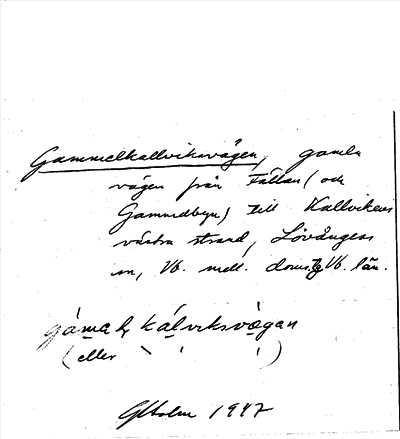 Gammelkallviksvägen, gamla
vägen från Fällan (och
Gammelbyn) till Kallvikens
västra strand, Lövångers
sn, Vb. mell. doms. Vb. län.
gámaḷ kálviksvǽgan
(eller ` ´ ´)
GHolm 1947